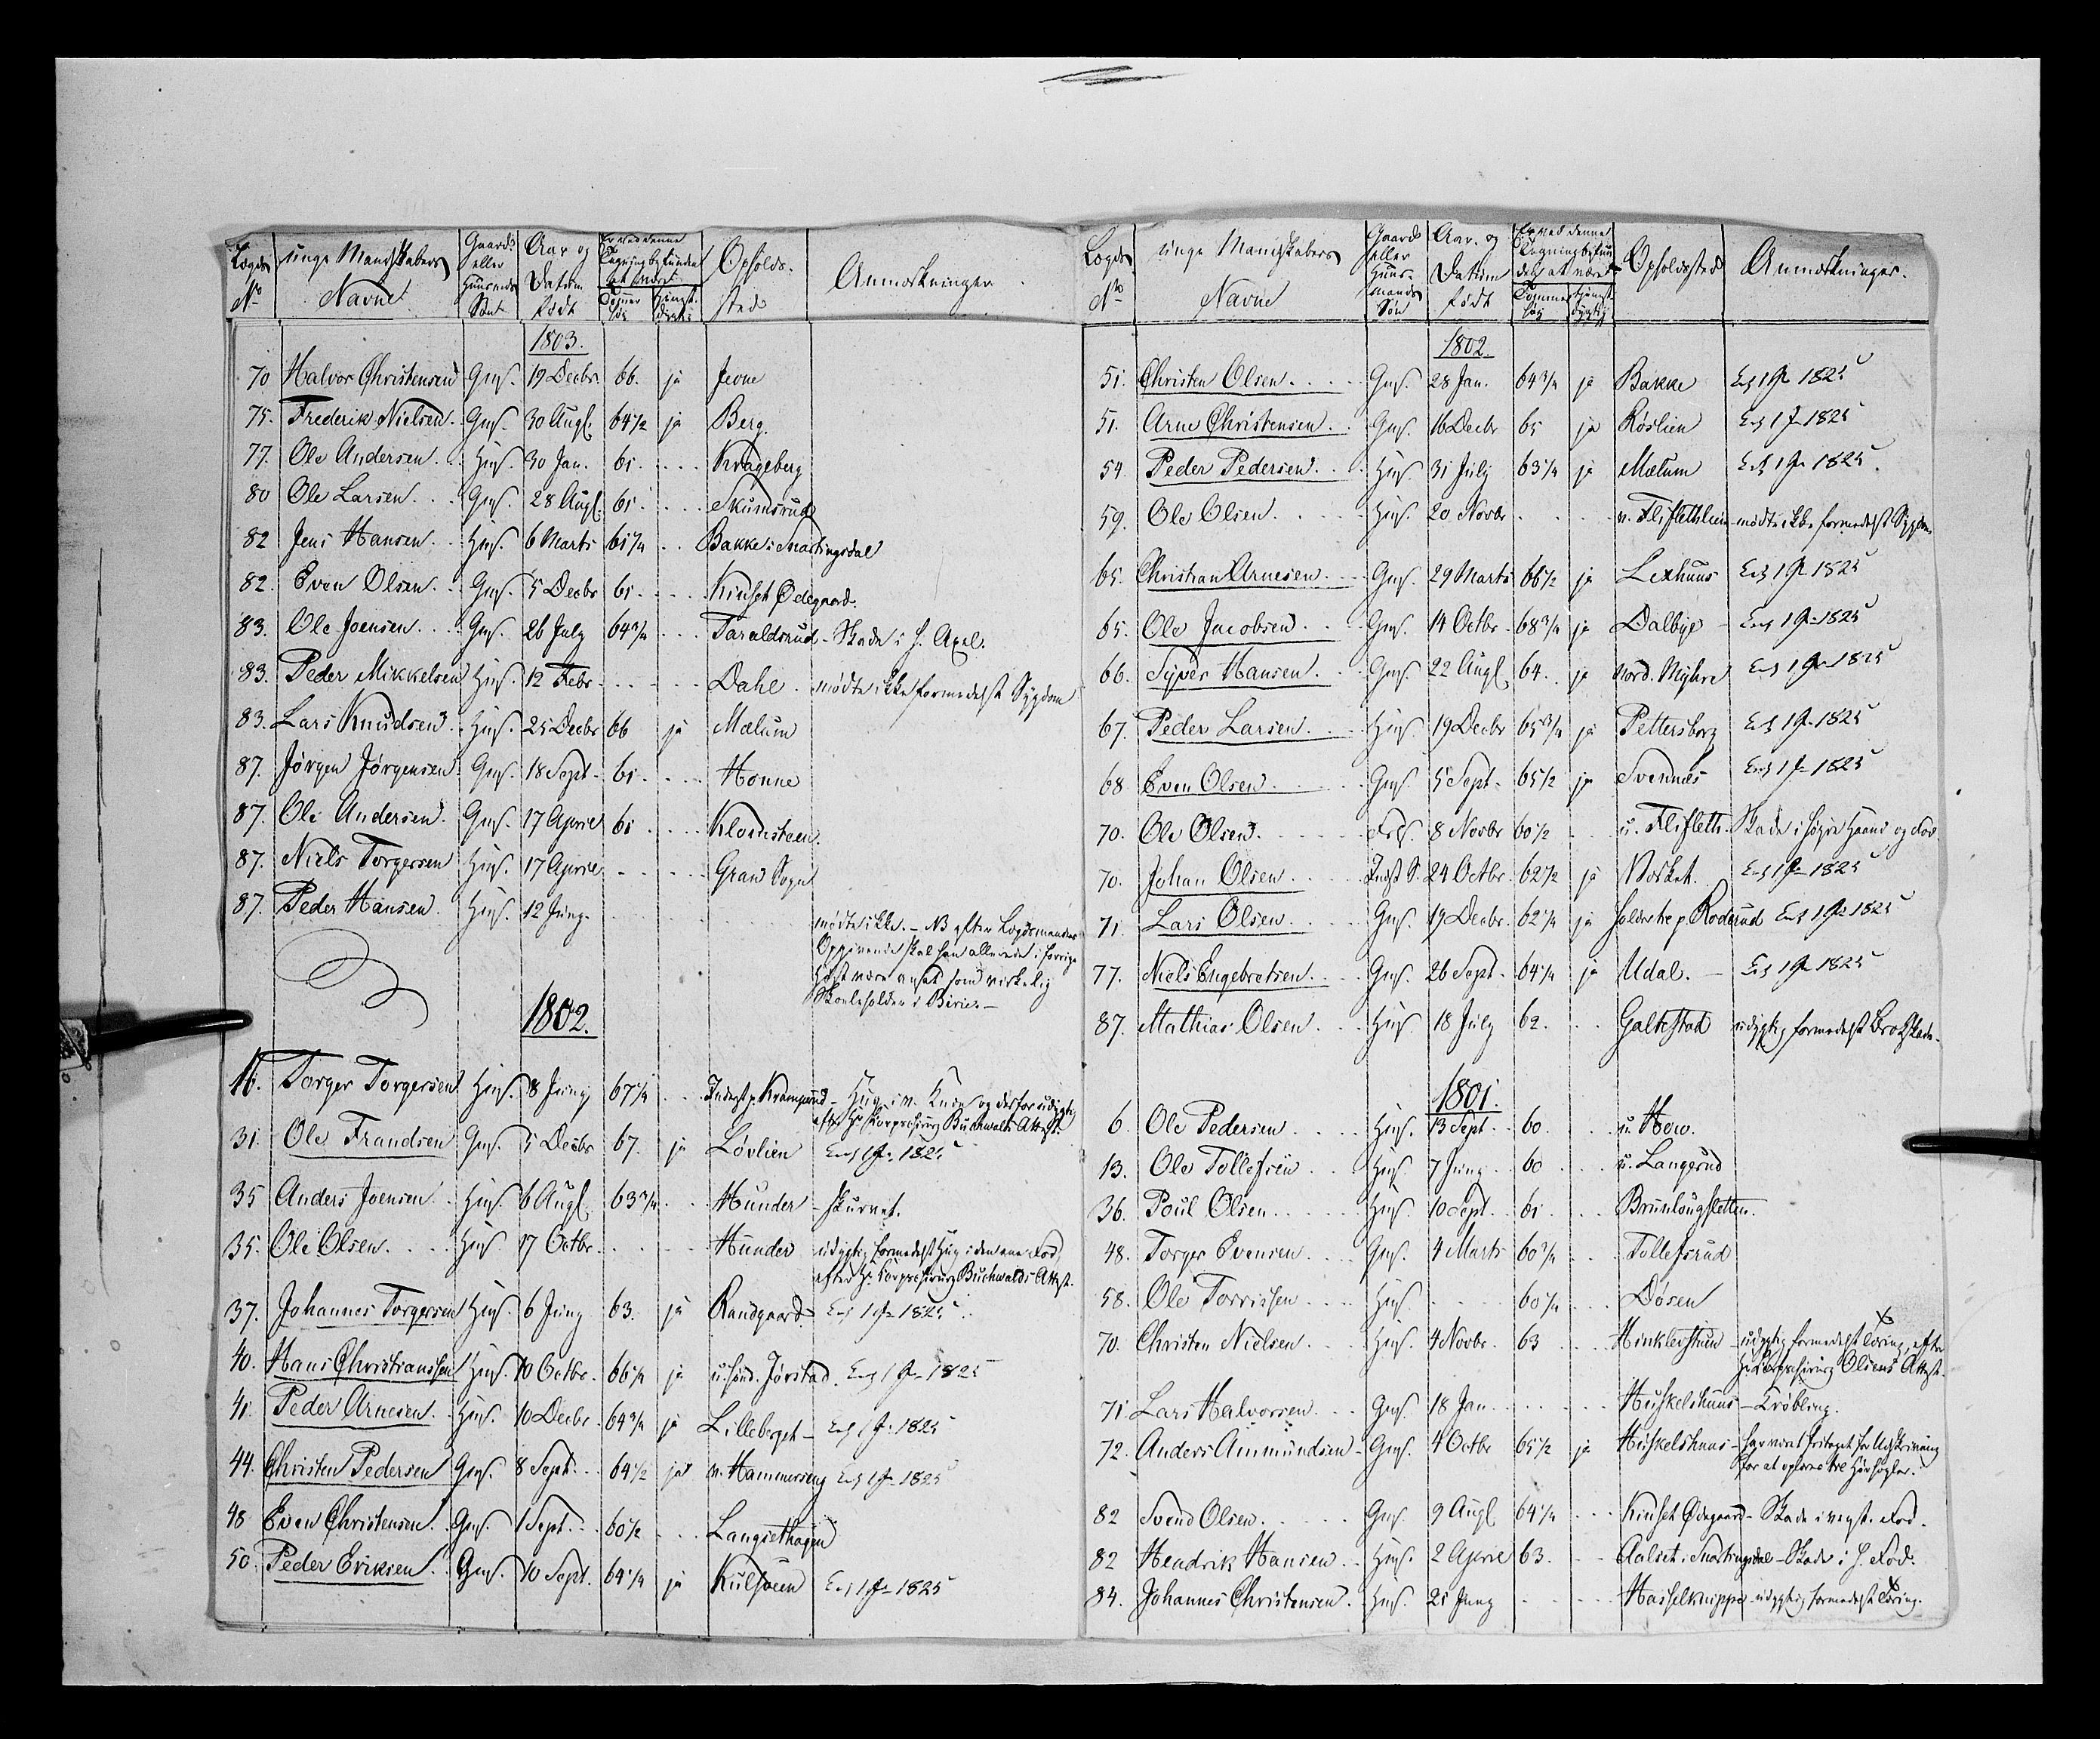 Lægds No | unge Mandskabers Navne | Gaard eller Huusmands Søn | Aar og Datum født | Er ved denne Tegning befunden at være Tommer høi | tjenstdygtig | Opholdssted | Anmærkninger
1803.
70 Halvor Christensen Gms. 19 Decbr. 66. ja Jevne
75. Frederik Nielsen Gms. 30 Augs. 64 1/2 ja Berg.
77. Ole Andersen Hms. 30 Jan. 61. Krageberg
80 Ole Larsen Gms. 28 Augs. 61. Skumsrud
82 Jens Hansen Hms. 6 Marts 61 1/4 Bakke i Snartingsdal
82. Even Olsen Gms. 5 Decbr 61. Kinset Ødegaard
83. Ole Joensen Gms. 26 July 64 3/4 Taraldsrud - Skade i h. Axel.
83. Peder Mikkelsen Hms. 12 Febr. Dahl mødte ikke formedelst Sygdom
83. Lars Knudsen Hms. 25 Decbr 66 ja Mælum
87. Jørgen Jørgensen Gms. 18 Sept. 61. Honne
87. Ole Andersen Gms. 17 April 61 Klovesteen
87. Niels Torgersen Hms. 17 April Gran Sogn
87. Peder Hansen Hms. 12 Juny
mødte ikke. - NB efter Lægdsmandens
Opgivende skal han allerede i forrige
Høst være ansat som virkelig
Skoleholder i Birie. -
1802.
16. Torger Torgersen Hms. 8 Juny 67 1/4 Inderst p. Kramprud - Hug i v. Knæ og derfor udygtig
efter Hr Corpschirurg Buchwalds Attest.
31. Ole Frandsen Gms. 5 Decbr 67. ja Løvlien 1825
35 Anders Joensen Hms. 6 Augs. 63 3/4 Hunder - skurvet.
35. Ole Olsen Hms. 17 Octbr. Hunder udygtig formedelst Hug i den ene Fod,
efter Hr Corpschirurg Buchwalds Attest.
37. Johannes Torgersen Hms. 6 Juny 63. ja Randgaard 1825
40. Hans Christianssen Hms. 10 Octbr. 66 1/4 ja u. sønd. Jørstad 1825
41. Peder Arnesen Hms. 10 Decbr. 64 3/4 ja Lilleberget - 1825
44. Christen Pedersen Gms. 8 Sept. 64 1/2 ja n. Hammerseng 1825
48 Even Christensen Gms. 1 Sept. 60 1/2 Langsethagen
50. Peder Eriksen Gms. 10 Sept. 64 1/4 ja Kulsveen 1825
Lægds No | unge Mandskabers Navne | Gaard eller Huusmands Søn | Aar og Datum født | Er ved denne Tegning befunden at være Tommer høi | tjenstdygtig | Opholdssted | Anmærkninger.
1802.
51. Christen Olsen Gms. 28 Jan. 64 3/4 ja Bakke 1825
51. Arne Christensen Gms. 16 Decbr 65 ja Röslien 1825
54. Peder Pedersen Hms. 31 July 63 1/4 ja Mælum 1825
59. Ole Olsen Hms. 20 Novbr n. Flisethlien mødte ikke formedelst Sygdom
65. Christian Arnesen Gms. 29 Marts 66 1/2 ja Lexhuus 1825
65. Ole Jacobsen Gms. 14 Octbr. 68 3/4 ja Dalbye 1825
66. Syver Hansen Gms. 22 Augs. 64. ja Nord. Myhre 1825
67. Peder Larsen Hms. 19 Decbr 65 3/4 ja Pettersborg 1825
68 Even Olsen Gms. 5 Sept. 65 1/2 ja Svennes 1825
70. Ole Olsen 8 Novbr 60 1/2 u. Flifleth. Skade i høyre Haand og Fod.
70. Johan Olsen Indst S. 24 Octbr. 62 1/2 ja 1825
71. Lars Olsen Gms. 19 Decbr. 62 1/4 ja p. Roderud 1825
77. Niels Engebretsen Gms. 26 Sept. 64 1/4 ja Udal. - 1825
87. Mathias Olsen Hms. 18 July 62. Galtestad udygtig formedelst Brokskade.
1801.
6. Ole Pedersen Hms. 13 Sept. 60. u. How.
13. Ole Tollefsen Hms. 7 Juny 60 u. Langerud
36. Poul Olsen Hms. 10 Sept. 61 Brunlougsletten.
48. Torger Evensen Gms. 4 Marts 60 3/4 Tollefsrud
58. Ole Torrissen Hms. 60 1/4 Døsen
70. Christen Nielsen Hms. 4 Novbr. 63 Hinklestuen - udygtig formedelst Tæring, efter
Hr Corpschirurg Olsens Attest.
71 Lars Halvorsen Gms. 18 Jan. Huskelshuus - Krøbling.
72. Anders Ammundsen Gms. 4 Octbr 65 1/2 ja Huskelshuus - har været fritaget for Udskrivning
for at oplære tre
82 Svend Olsen Gms. 9 Augs. 64 1/4 Kinset Ødegaard - Skade i venst. Fod.
82 Hendrik Hansen Hms. 2 April 63. Aalset i Snartingsdal - Skade i h. Fod.
84. Johannes Christensen Hms. 21 Juny Hasselknippe - udygtig formedelst Tæring.